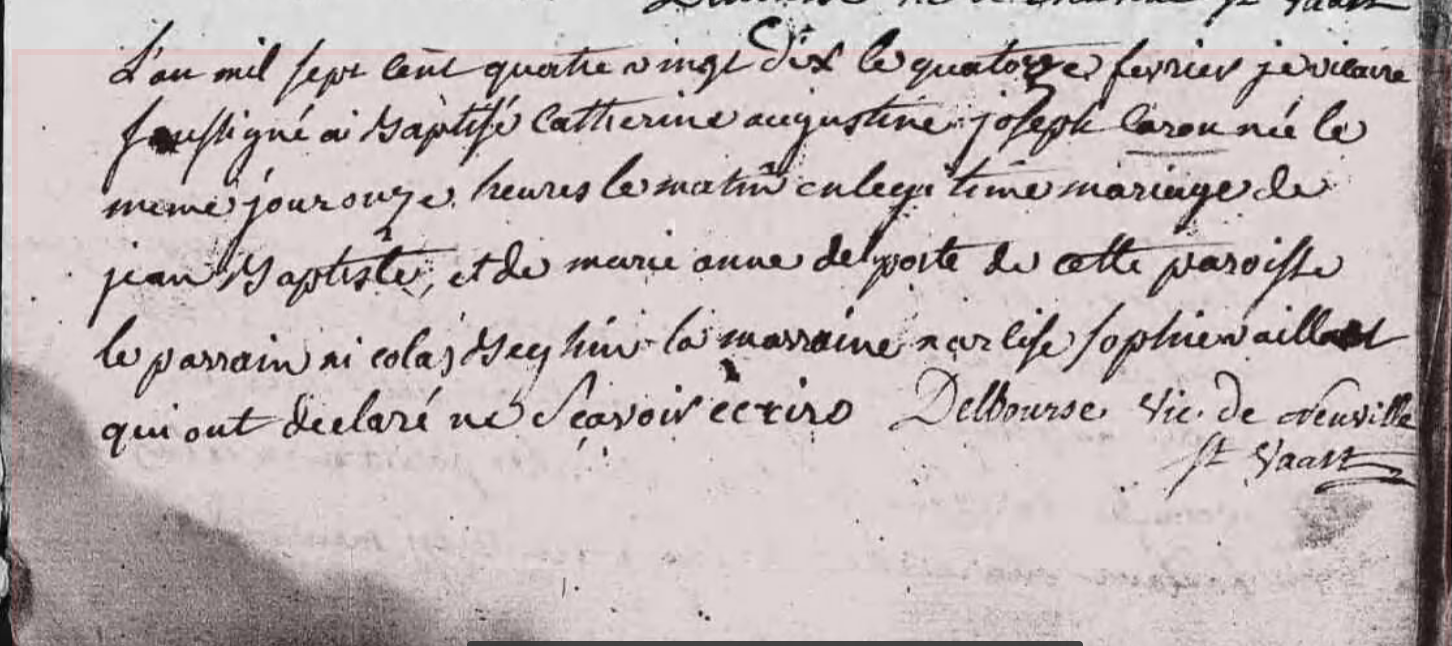 L'an mil sept cent quatre vingt dix le quatorze fevrier je vicaire
soussigné ai baptisé Catherine augustine joseph Caron née le
meme jour onze heures le matin en legitime mariage de
jean Baptiste, et de marie anne delporte de cette paroisse
le parrain nicolas Beghin la marraine narlise sophie vaillant
qui ont declaré ne sçavoir ecrire Delbourse vic. de Neuville
st Vaast